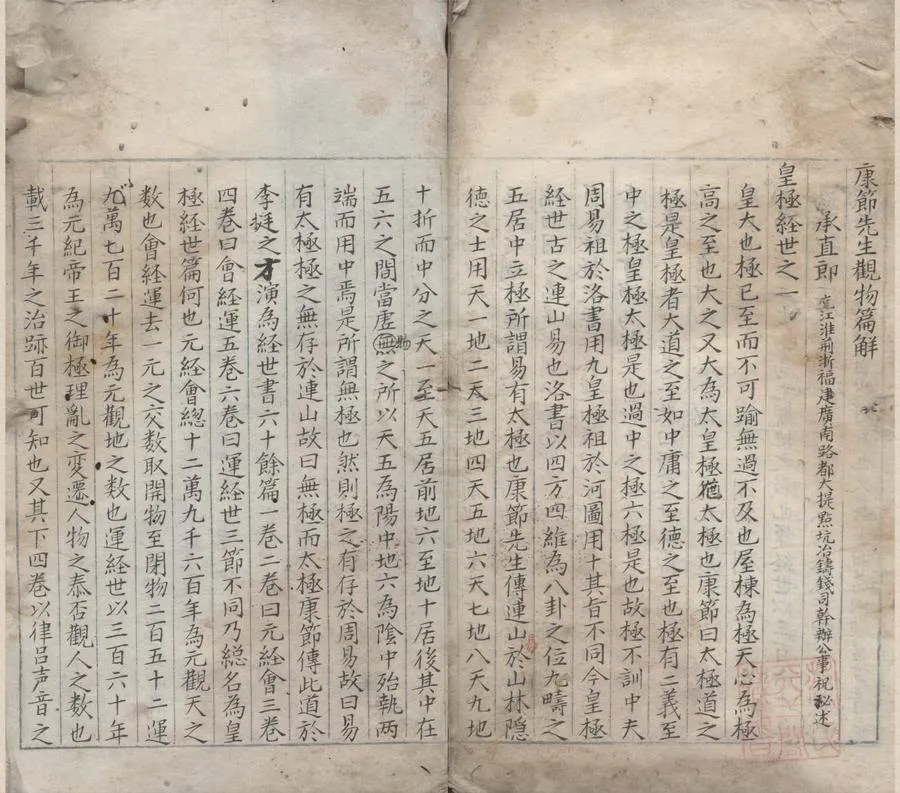 康節先生觀物篇解
承直郎 充江淮荊浙福建廣南路都大提點坑冶鑄錢司幹辦公事祝秘述
皇極經世之一
皇大也極已至而不可踰無過不及也屋棟為極天心為極
高之至也大之又大為太皇極猶太極也康節曰太極道之
極是皇極者大道之至如中庸之至德之至也極有二義至
中之極皇極太極是也過中之極六極是也故極不訓中夫
周易祖於洛書用九皇極祖於河圖用十其旨不同今皇極
經世古之連山易也洛書以四方四維為八卦之位九疇之
五居中立極所謂易有太極也康節先生傳連山於山林隱
德之士用天一地二天三地四天五地六天七地八天九地
十折而中分之天一至天五居前地六至地十居後其中在
五六之間當虛無物之所以天五為陽中地六為陰中殆執兩
端而用中焉是所謂無極也然則極之有存於周易故曰易
有太極極之無存於連山故曰無極而太極康節傳此道於
李挺之才演為經世書六十餘篇一卷二卷曰元經會三卷
四卷曰會經運五卷六卷曰運經世三節不同乃總名為皇
極經世篇何也元經會總十二萬九千六百年為元觀天之
数也會經運去一元之交数取開物至閉物二百五十二運
九萬七百二十年為元觀地之数也運經世以三百六十年
為元紀帝王之御極理亂之變遷人物之泰否觀人之数也
載三千年之治跡百世可知也又其下四卷以律呂声音之